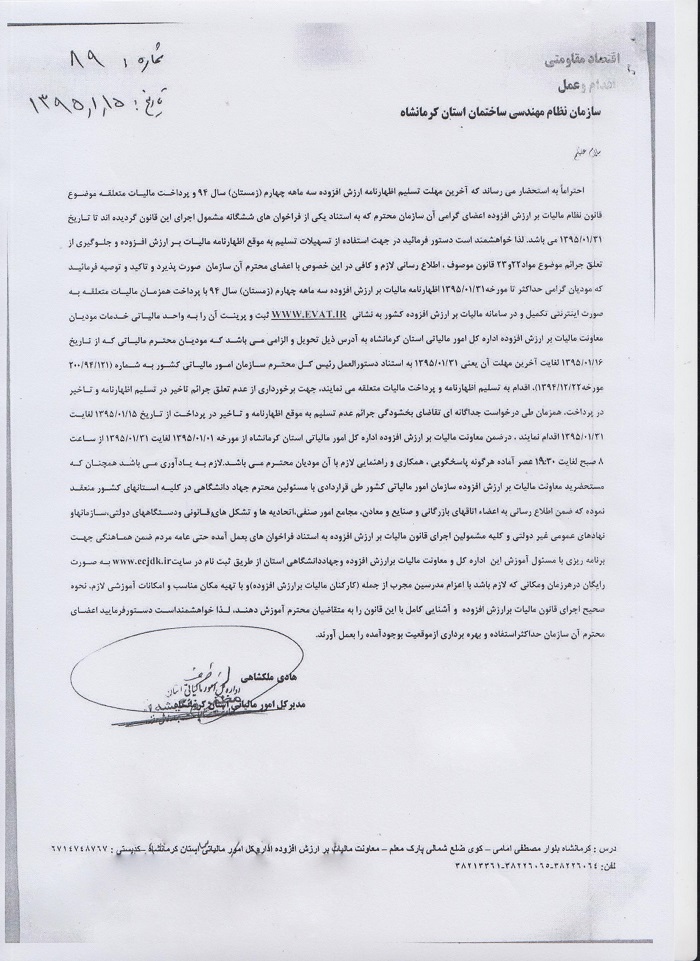 شماره : ۸۹
تاریخ : ۱۳۹۵,۱,۱۵
اقتصاد مقاومتی
اقدام و عمل
سازمان نظام مهندسی ساختمان استان کرمانشاه
سلام علیکم
احتراماً به استحضار می رساند که آخرین مهلت تسلیم اظهارنامه ارزش افزوده سه ماهه چهارم (زمستان) سال ۹۴ و پرداخت مالیات متعلقه موضوع
قانون نظام مالیات بر ارزش افزوده اعضای گرامی آن سازمان محترم که به استناد یکی از فراخوان های ششگانه مشمول اجرای این قانون گردیده اند تا تاریخ
۱۳۹۵/۰۱/۳۱ می باشد. لذا خواهشمند است دستور فرمائید در جهت استفاده از تسهیلات تسلیم به موقع اظهارنامه مالیات بر ارزش افزوده و جلوگیری از
تعلق جرائم موضوع مواد۲۲و۲۳ قانون موصوف ، اطلاع رسانی لازم و کافی در این خصوص با اعضای محترم آن سازمان صورت پذیرد و تاکید و توصیه فرمائید
که مودیان گرامی حداکثر تا مورخه ۱۳۹۵/۰۱/۳۱ اظهارنامه مالیات بر ارزش افزوده سه ماهه چهارم (زمستان) سال ۹۴ با پرداخت همزمان مالیات متعلقه به
صورت اینترنتی تکمیل و در سامانه مالیات بر ارزش افزوده کشور به نشانی WWW.EVAT.IR ثبت و پرینت آن را به واحد مالیاتی خدمات مودیان
معاونت مالیات بر ارزش افزوده اداره کل امور مالیاتی استان کرمانشاه به آدرس ذیل تحویل و الزامی می باشد که مودیان محترم مالیاتی که از تاریخ
۱۳۹۵/۰۱/۱۶ لغایت آخرین مهلت آن یعنی ۱۳۹۵/۰۱/۳۱ به استناد دستورالعمل رئیس کل محترم سازمان امور مالیاتی کشور به شماره (۲۰۰/۹۴/۱۲۱
مورخه ۱۳۹۴/۱۲/۲۲)، اقدام به تسلیم اظهارنامه و پرداخت مالیات متعلقه می نمایند، جهت برخورداری از عدم تعلق جرائم تاخیر در تسلیم اظهارنامه و تاخیر
در پرداخت، همزمان طی درخواست جداگانه ای تقاضای بخشودگی جرائم عدم تسلیم به موقع اظهارنامه و تاخیر در پرداخت از تاریخ ۱۳۹۵/۰۱/۱۵ لغایت
۱۳۹۵/۰۱/۳۱ اقدام نمایند . درضمن معاونت مالیات بر ارزش افزوده اداره کل امور مالیاتی استان کرمانشاه از مورخه ۱۳۹۵/۰۱/۰۱ لغایت ۱۳۹۵/۰۱/۳۱ از ساعت
۸ صبح لغایت ۱۹:۳۰ عصر آماده هرگونه پاسخگویی ، همکاری و راهنمایی لازم با آن مودیان محترم می باشد.لازم به یادآوری می باشد همچنان که
مستحضرید معاونت مالیات بر ارزش افزوده سازمان امور مالیاتی کشور طی قراردادی با مسئولین محترم جهاد دانشگاهی در کلیه استانهای کشور منعقد
نموده که ضمن اطلاع رسانی به اعضاء اتاقهای بازرگانی و صنایع و معادن، مجامع امور صنفی،اتحادیه ها و تشکل های قانونی ودستگاههای دولتی،سازمانهاو
نهادهای عمومی غیر دولتی و کلیه مشمولین اجرای قانون مالیات بر ارزش افزوده به استناد فراخوان های بعمل آمده حتی عامه مردم ضمن هماهنگی جهت
برنامه ریزی با مسئول آموزش این اداره کل و معاونت مالیات برارزش افزوده وجهاددانشگاهی استان از طریق ثبت نام در سایت www.ecjdk.ir به صورت
رایگان درهرزمان ومکانی که لازم باشد با اعزام مدرسین مجرب از جمله (کارکنان مالیات برارزش افزوده)و با تهیه مکان مناسب و امکانات آموزشی لازم، نحوه
صحیح اجرای قانون مالیات برارزش افزوده و آشنایی کامل با این قانون را به متقاضیان محترم آموزش دهند، لذا خواهشمنداست دستورفرمایید اعضای
محترم آن سازمان حداکثراستفاده و بهره برداری ازموقعیت بوجودآمده را بعمل آورند.
هادی ملکشاهی
از طرف
اداره کل امور مالیاتی استان
مدیرکل امور مالیاتی استان کرمانشاه
درس : کرمانشاه بلوار مصطفی امامی – کوی ضلع شمالی پارک معلم – معاونت مالیات بر ارزش افزوده اداره کل امور مالیاتی استان کرمانشاه – کدپستی : ۶۷۱۴۷۴۸۷۶۷
لفن: ۳۸۲۲۶۰۶۴-۳۸۲۲۶۰۶۵-۳۸۲۱۳۳۶۱